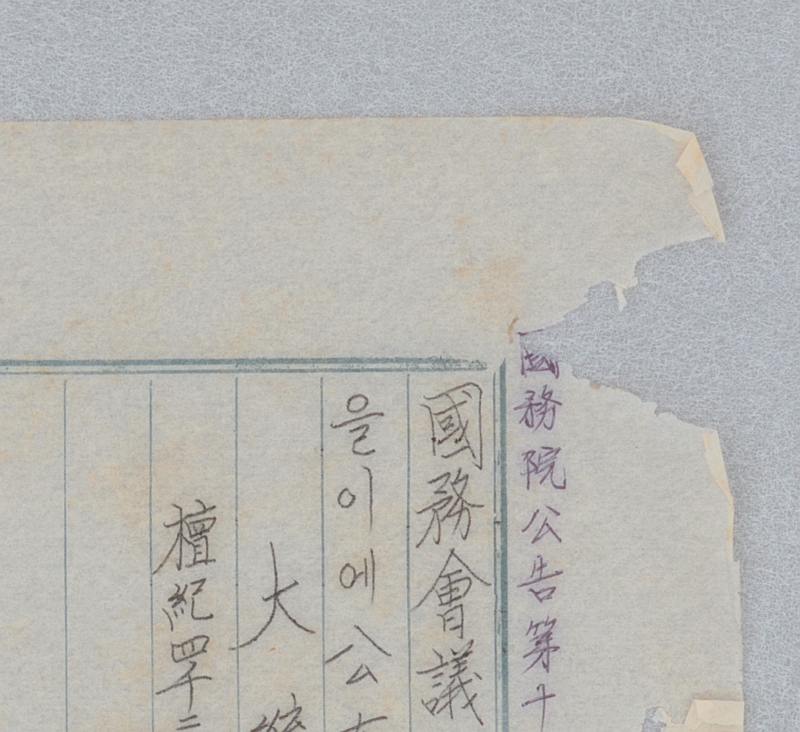 國務院公告第十
國務會議
을이에公
大
檀紀四千二